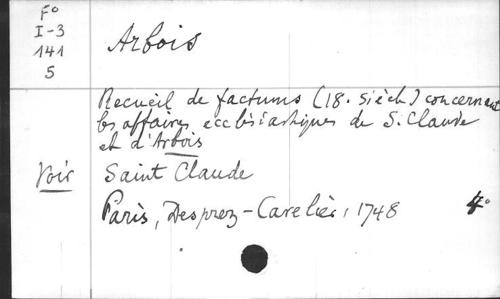 Fº
I-3
141
5
Arbois
Recueil de factums (18. siècle) concernant
les affaires ecclésiastiques de S. Claude
et d'Arbois
Voir Saint Claude
Paris, Desprez-Cavelier, 1748 4º